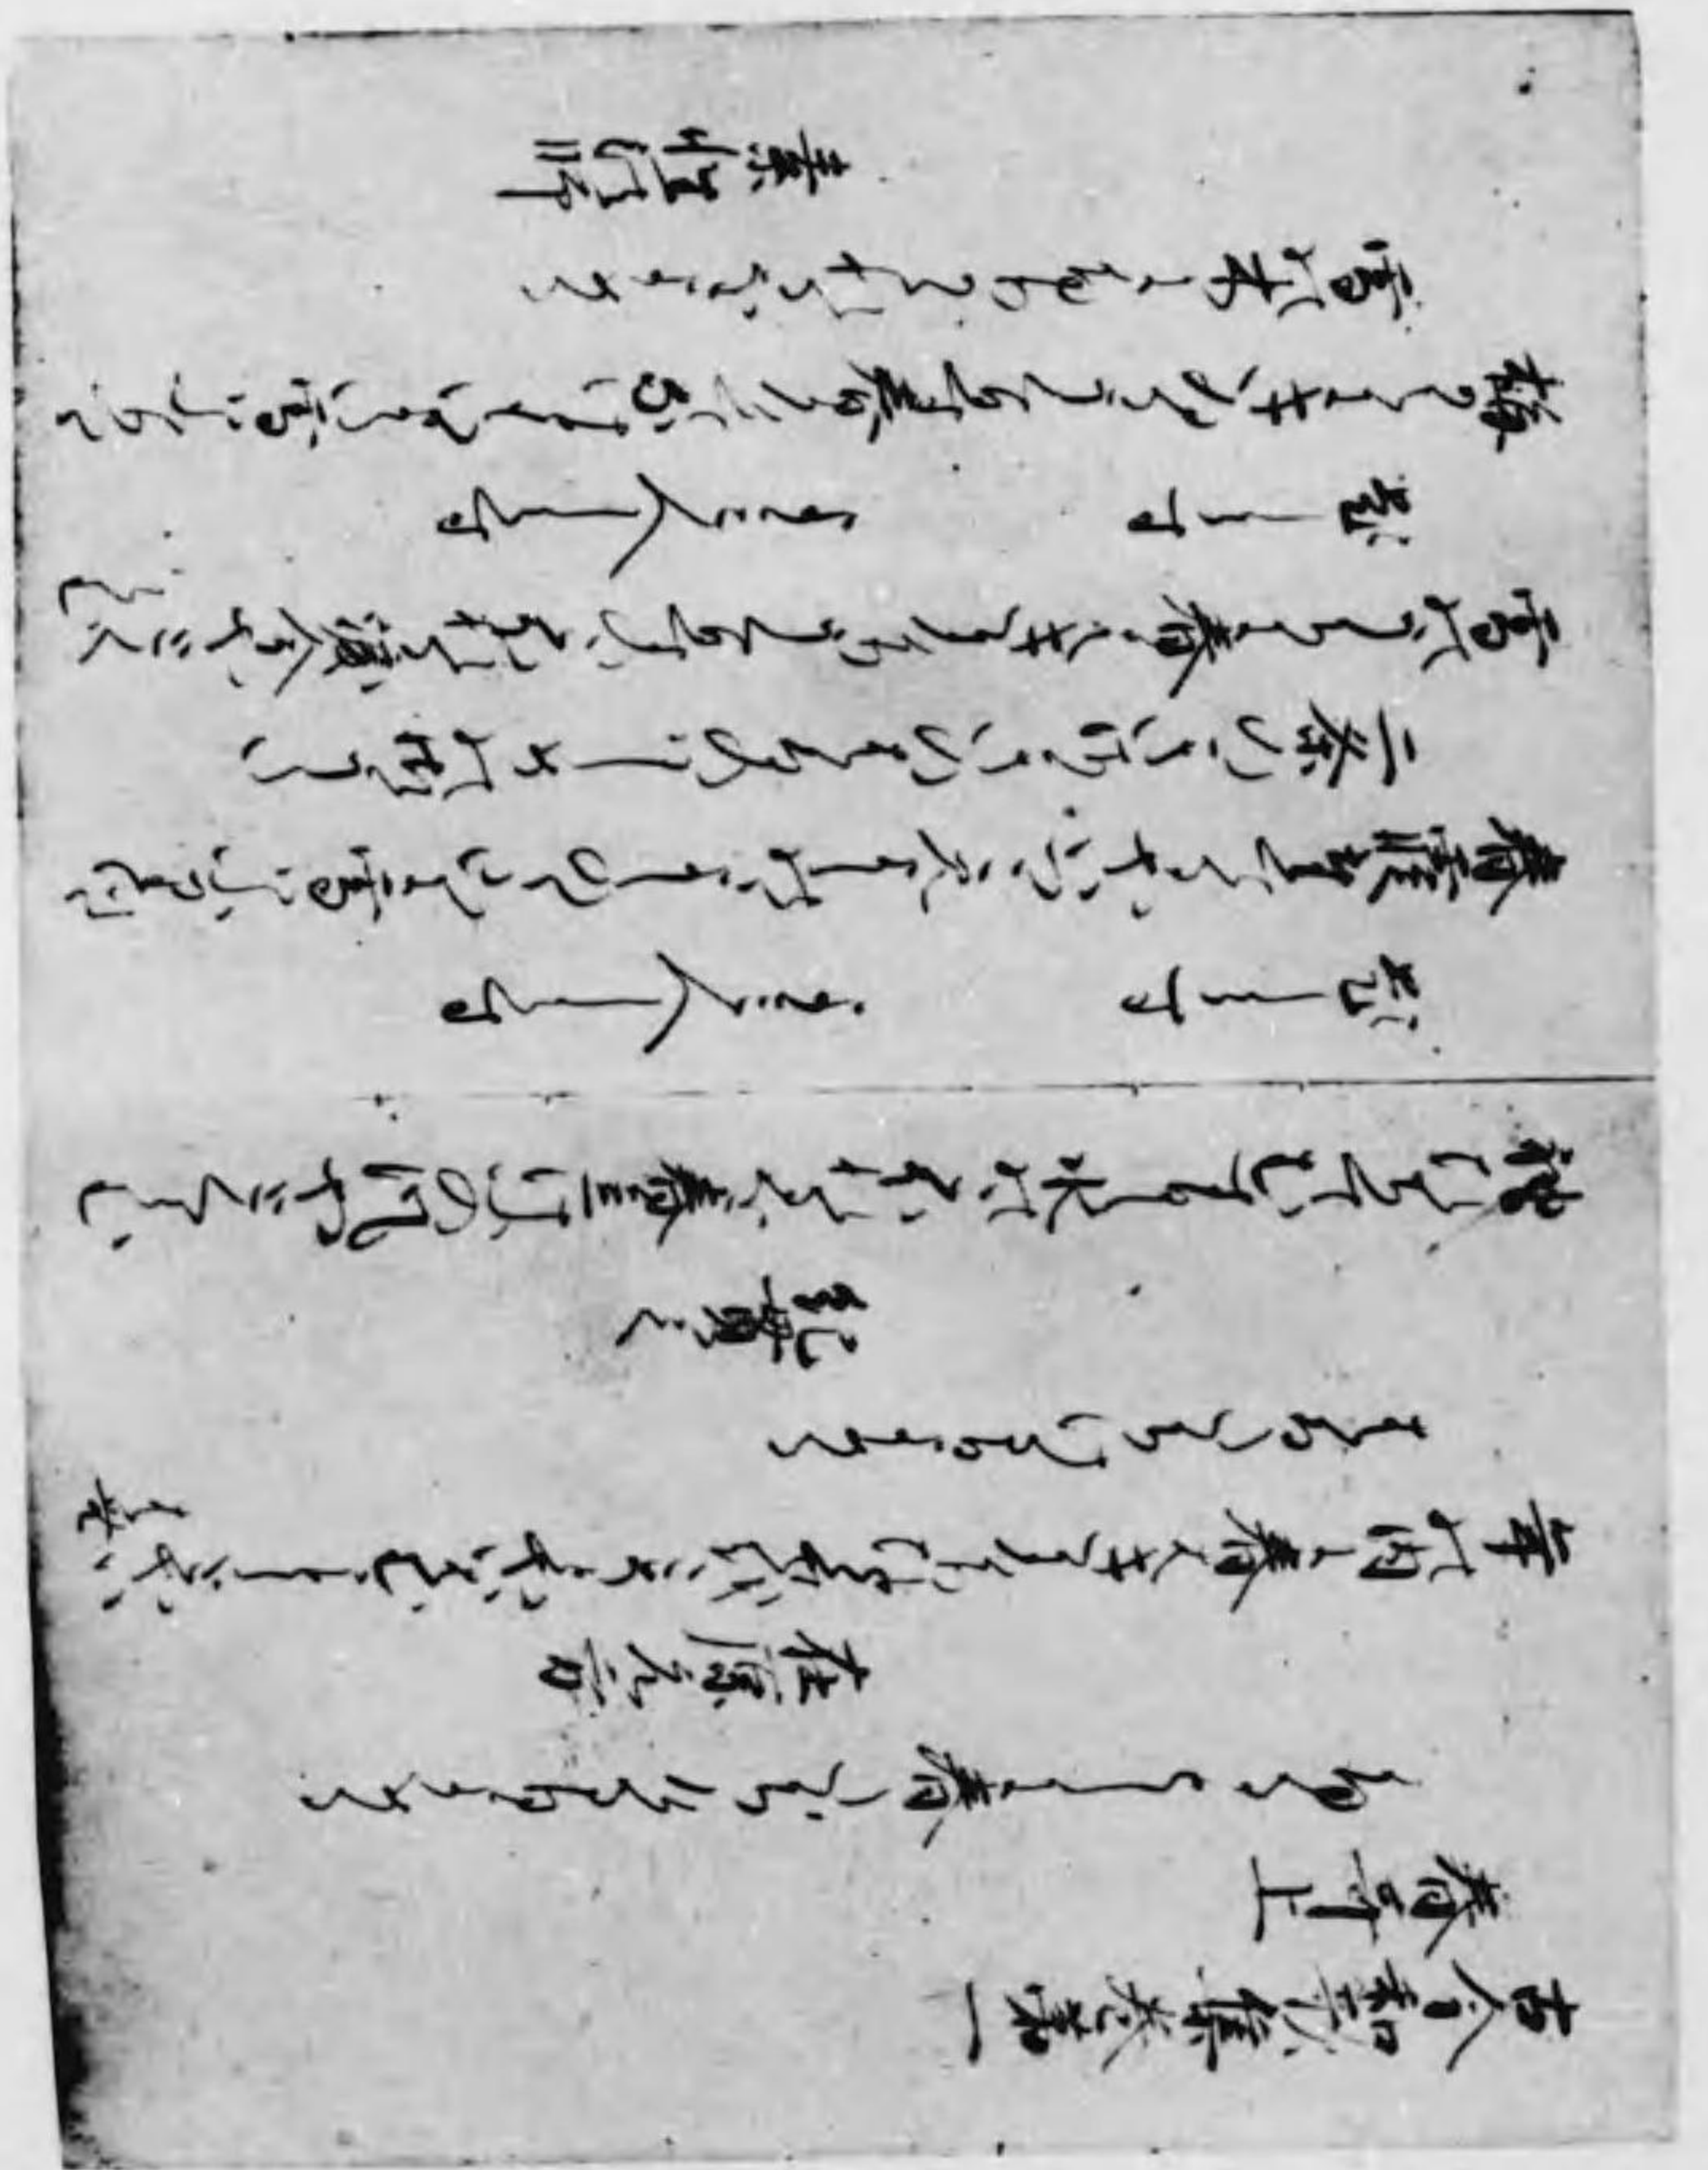 古今和歌集巻第一
春哥上
ふるとしに春たちける日よめる
在原元方
年の内に春はきにけりひとゝせをこそとやいはむことしとやいはむ
はるたちける日よめる
紀貫之
袖ひちてむすひし水のこほれるを春立けふの風やとくらむ
題しらす　よみ人しらす
春霞たてるやいつこみよしのゝよしのゝ山に雪はふりつゝ
二条のきさきの春のはしめの御うた
雪の内に春はきにけり鶯のこほれる涙いまやとくらむ
題しらす　よみ人しらす
梅かえにきゐる鶯春かけてなけともいまた雪はふりつゝ
雪の木にふりかゝれるをよめる
素性法師